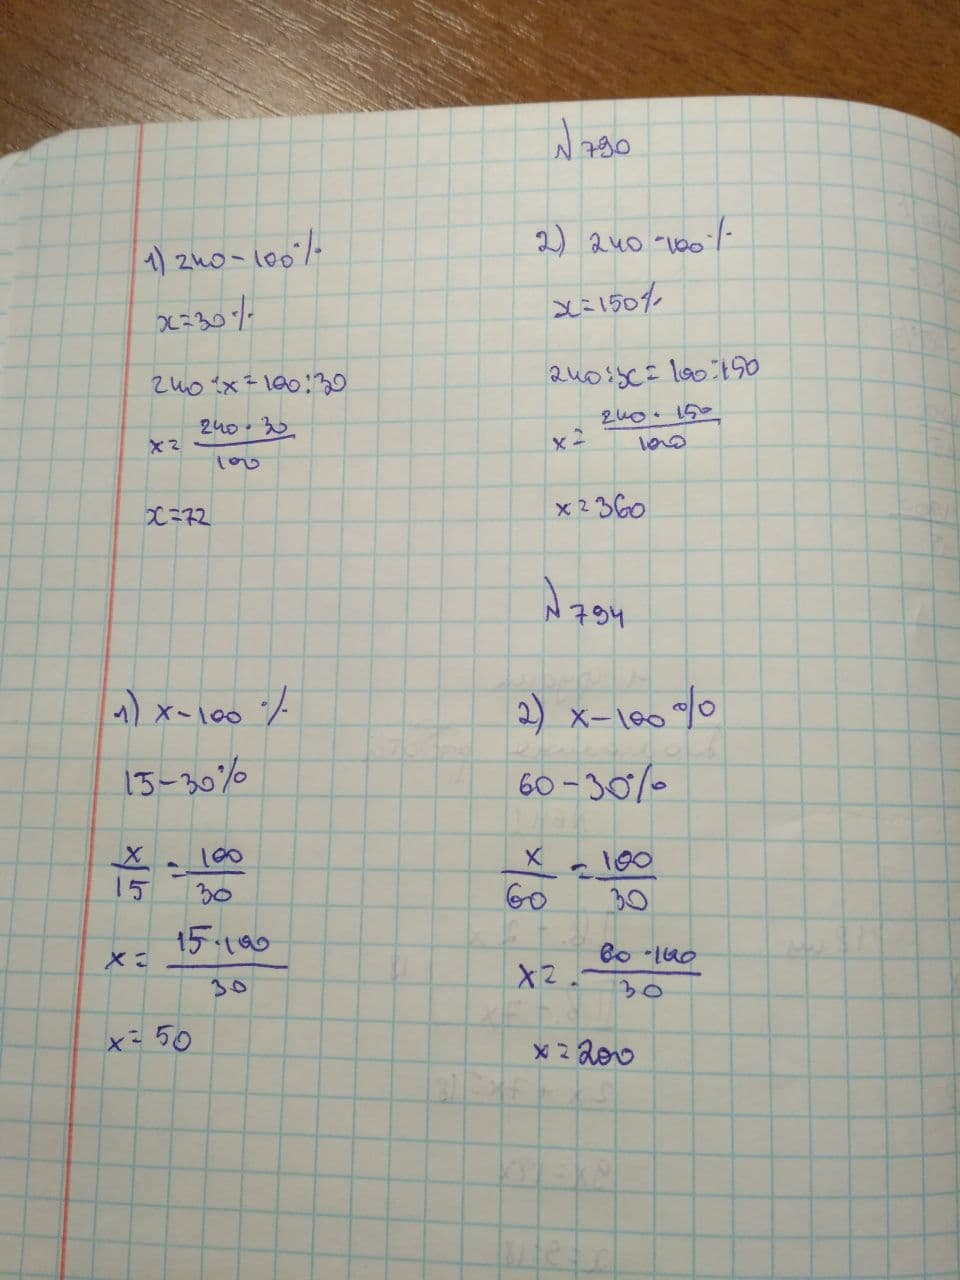 № 790
1) 240 - 100%
x = 30%
240 : x = 100 : 30
x = 240 · 30 / 100
x = 72
2) 240 - 100%
x = 150%
240 : x = 100 : 150
x = 240 · 150 / 100
x = 360
№ 794
1) x - 100%
15 - 30%
x / 15 = 100 / 30
x = 15 · 100 / 30
x = 50
2) x - 100%
60 - 30%
x / 60 = 100 / 30
x = 60 · 100 / 30
x = 200